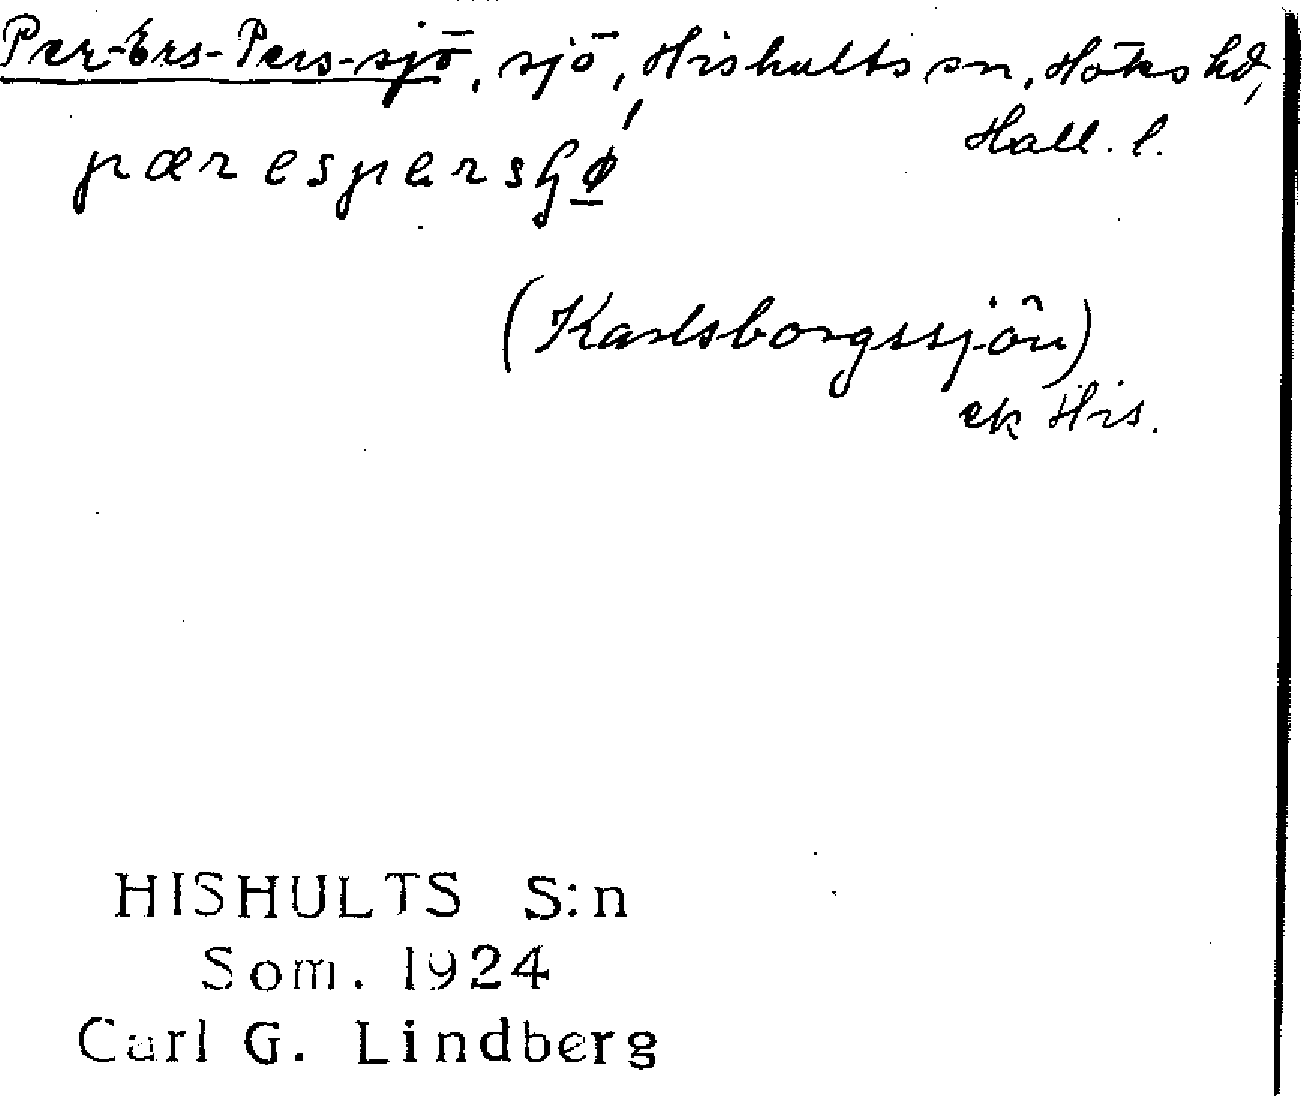 Per-Ers-Pers-sjö, sjö, Hishults sn, Höks hd,
Hall. l.
pærespersɧǿ̱
(Karlsborgssjön)
ek His.
HISHULTS S:n
Som. 1924
Carl G. Lindberg